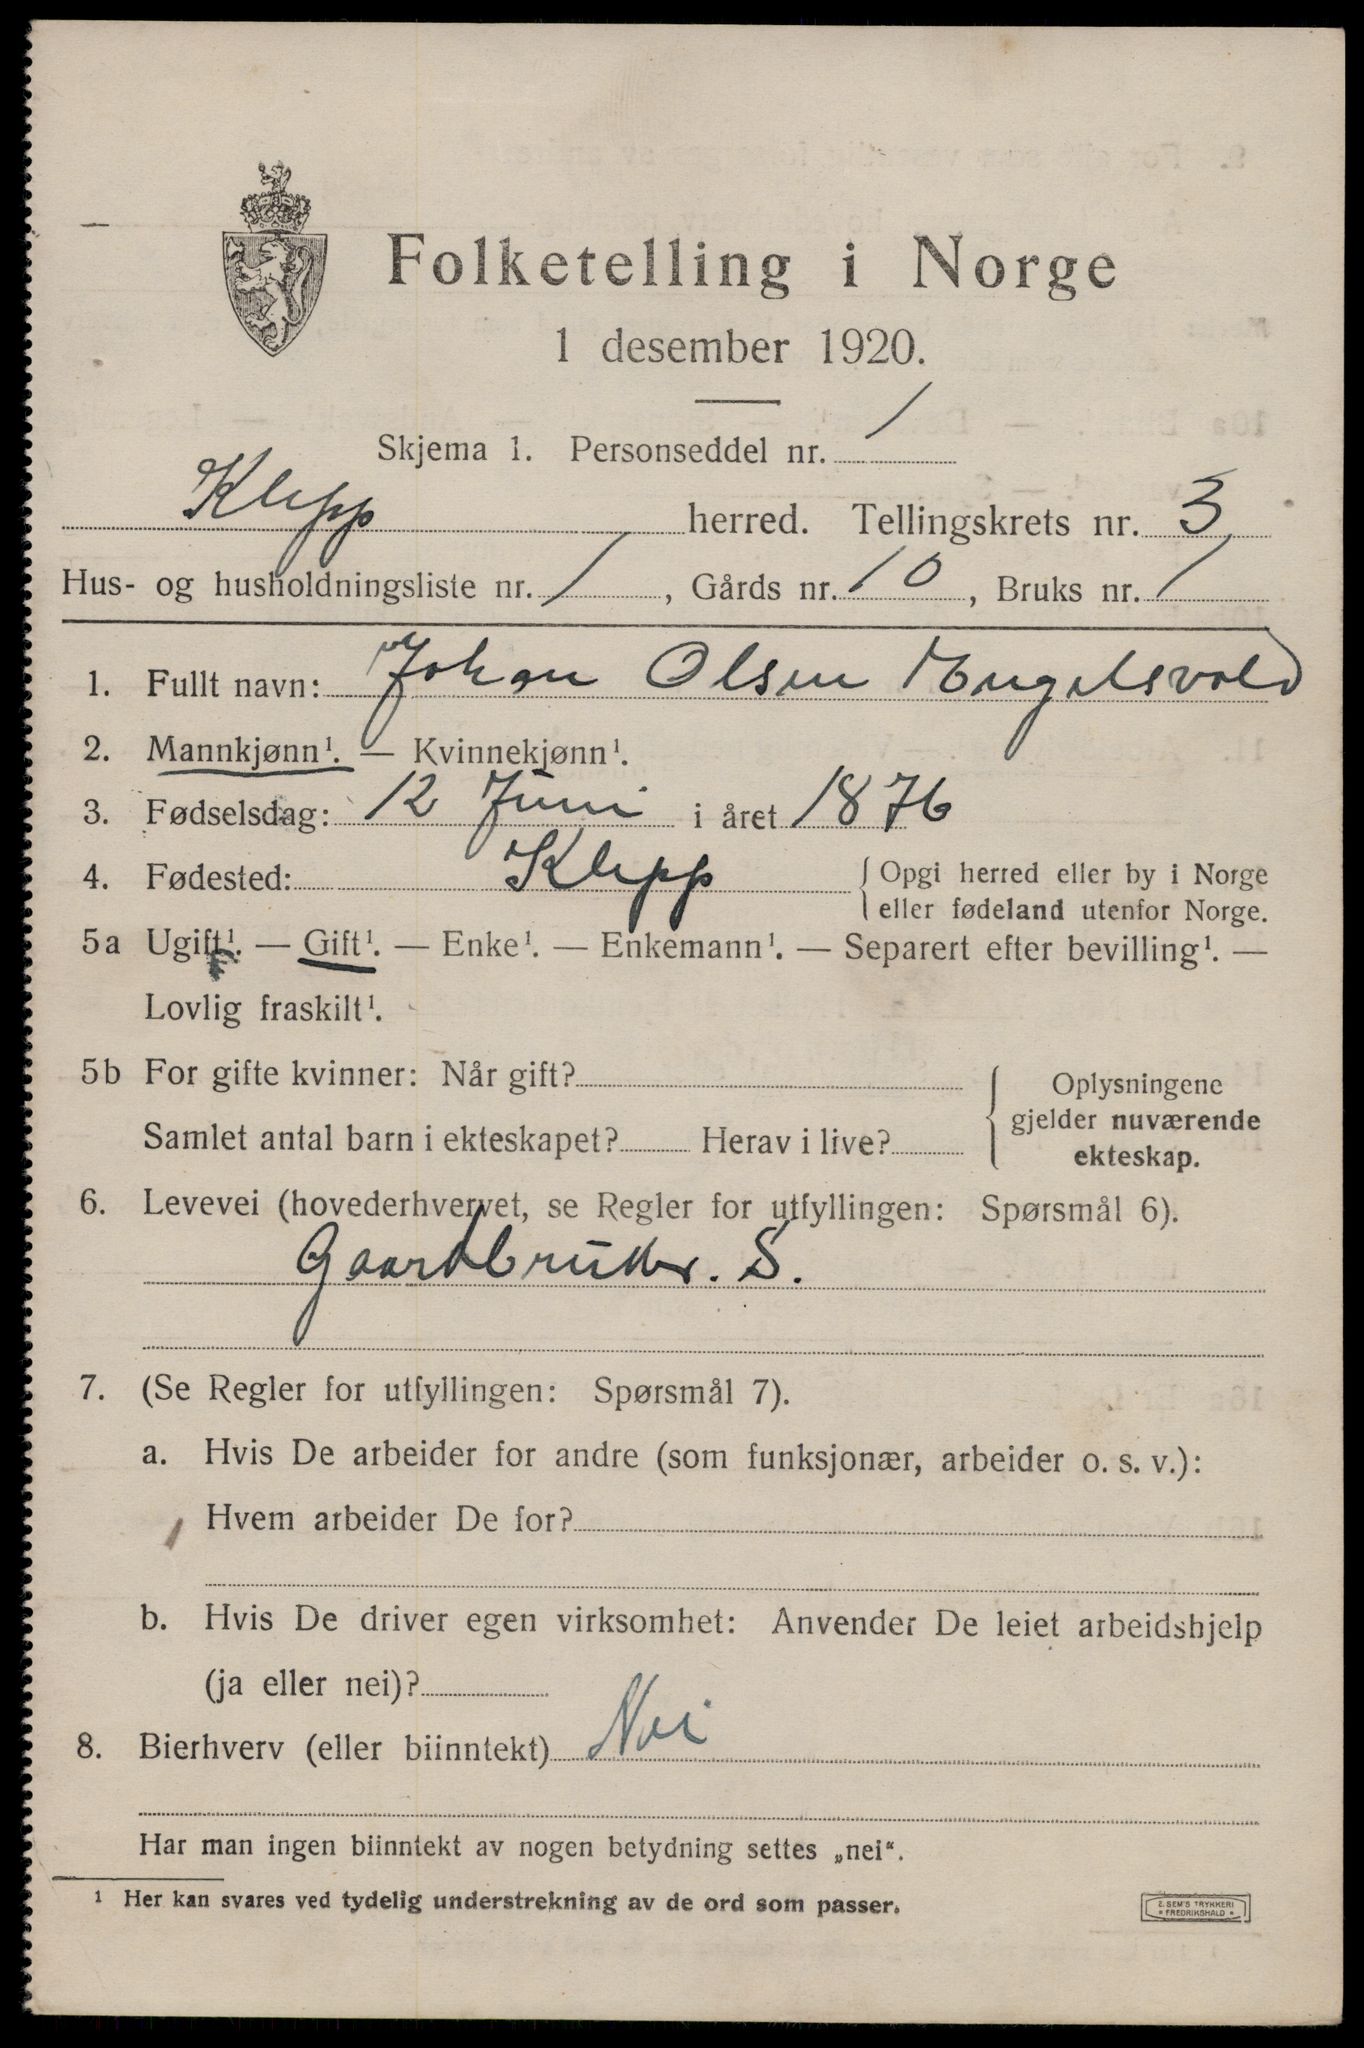 Folketelling i Norge
1 desember 1920.
Skjema 1. Personseddel nr. 1
Klepp herred. Tellingskrets nr. 3
Hus- og husholdningsliste nr. 1, Gårds nr. 10, Bruks nr. 1
1. Fullt navn: Johan Olsen Engelsvold
2. Mannkjønn¹. — Kvinnekjønn¹.
3. Fødselsdag: 12 Juni i året 1876
4. Fødested: Klepp { Opgi herred eller by i Norge
eller fødeland utenfor Norge.
5a Ugift¹. — Gift¹. — Enke¹. — Enkemann¹. — Separert efter bevilling¹. —
Lovlig fraskilt¹.
5b For gifte kvinner: Når gift?
Samlet antal barn i ekteskapet? Herav i live?
{ Oplysningene
gjelder nuværende
ekteskap.
6. Levevei (hovederhvervet, se Regler for utfyllingen: Spørsmål 6).
Gaardbruker. S.
7. (Se Regler for utfyllingen: Spørsmål 7).
a. Hvis De arbeider for andre (som funksjonær, arbeider o. s. v.):
Hvem arbeider De for?
b. Hvis De driver egen virksomhet: Anvender De leiet arbeidshjelp
(ja eller nei)?
8. Bierhverv (eller biinntekt) Nei
Har man ingen biinntekt av nogen betydning settes „nei“.
¹ Her kan svares ved tydelig understrekning av de ord som passer.
E. SEM'S TRYKKERI
* FREDRIKSHALD *